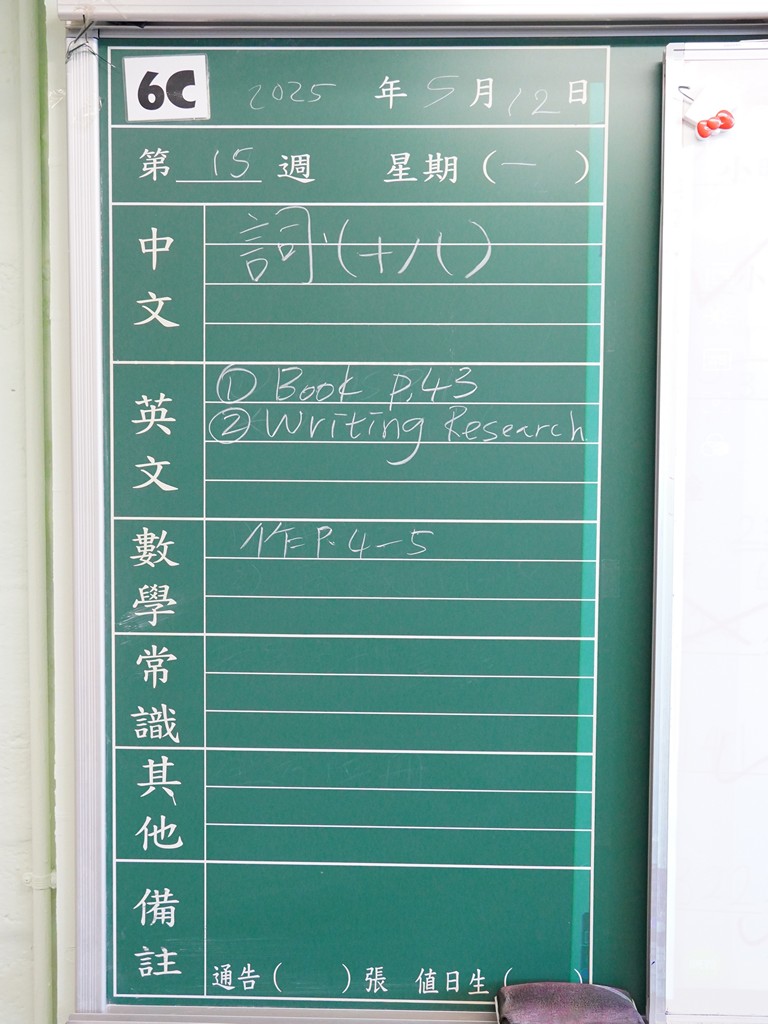 6C 2025 年 5 月 12 日
第 15 週 星期 (一)
中文 詞(十八)
英文 ① Book p.43
② Writing Research
數學 作 P. 4-5
常識
其他
備註
通告( )張 值日生( )